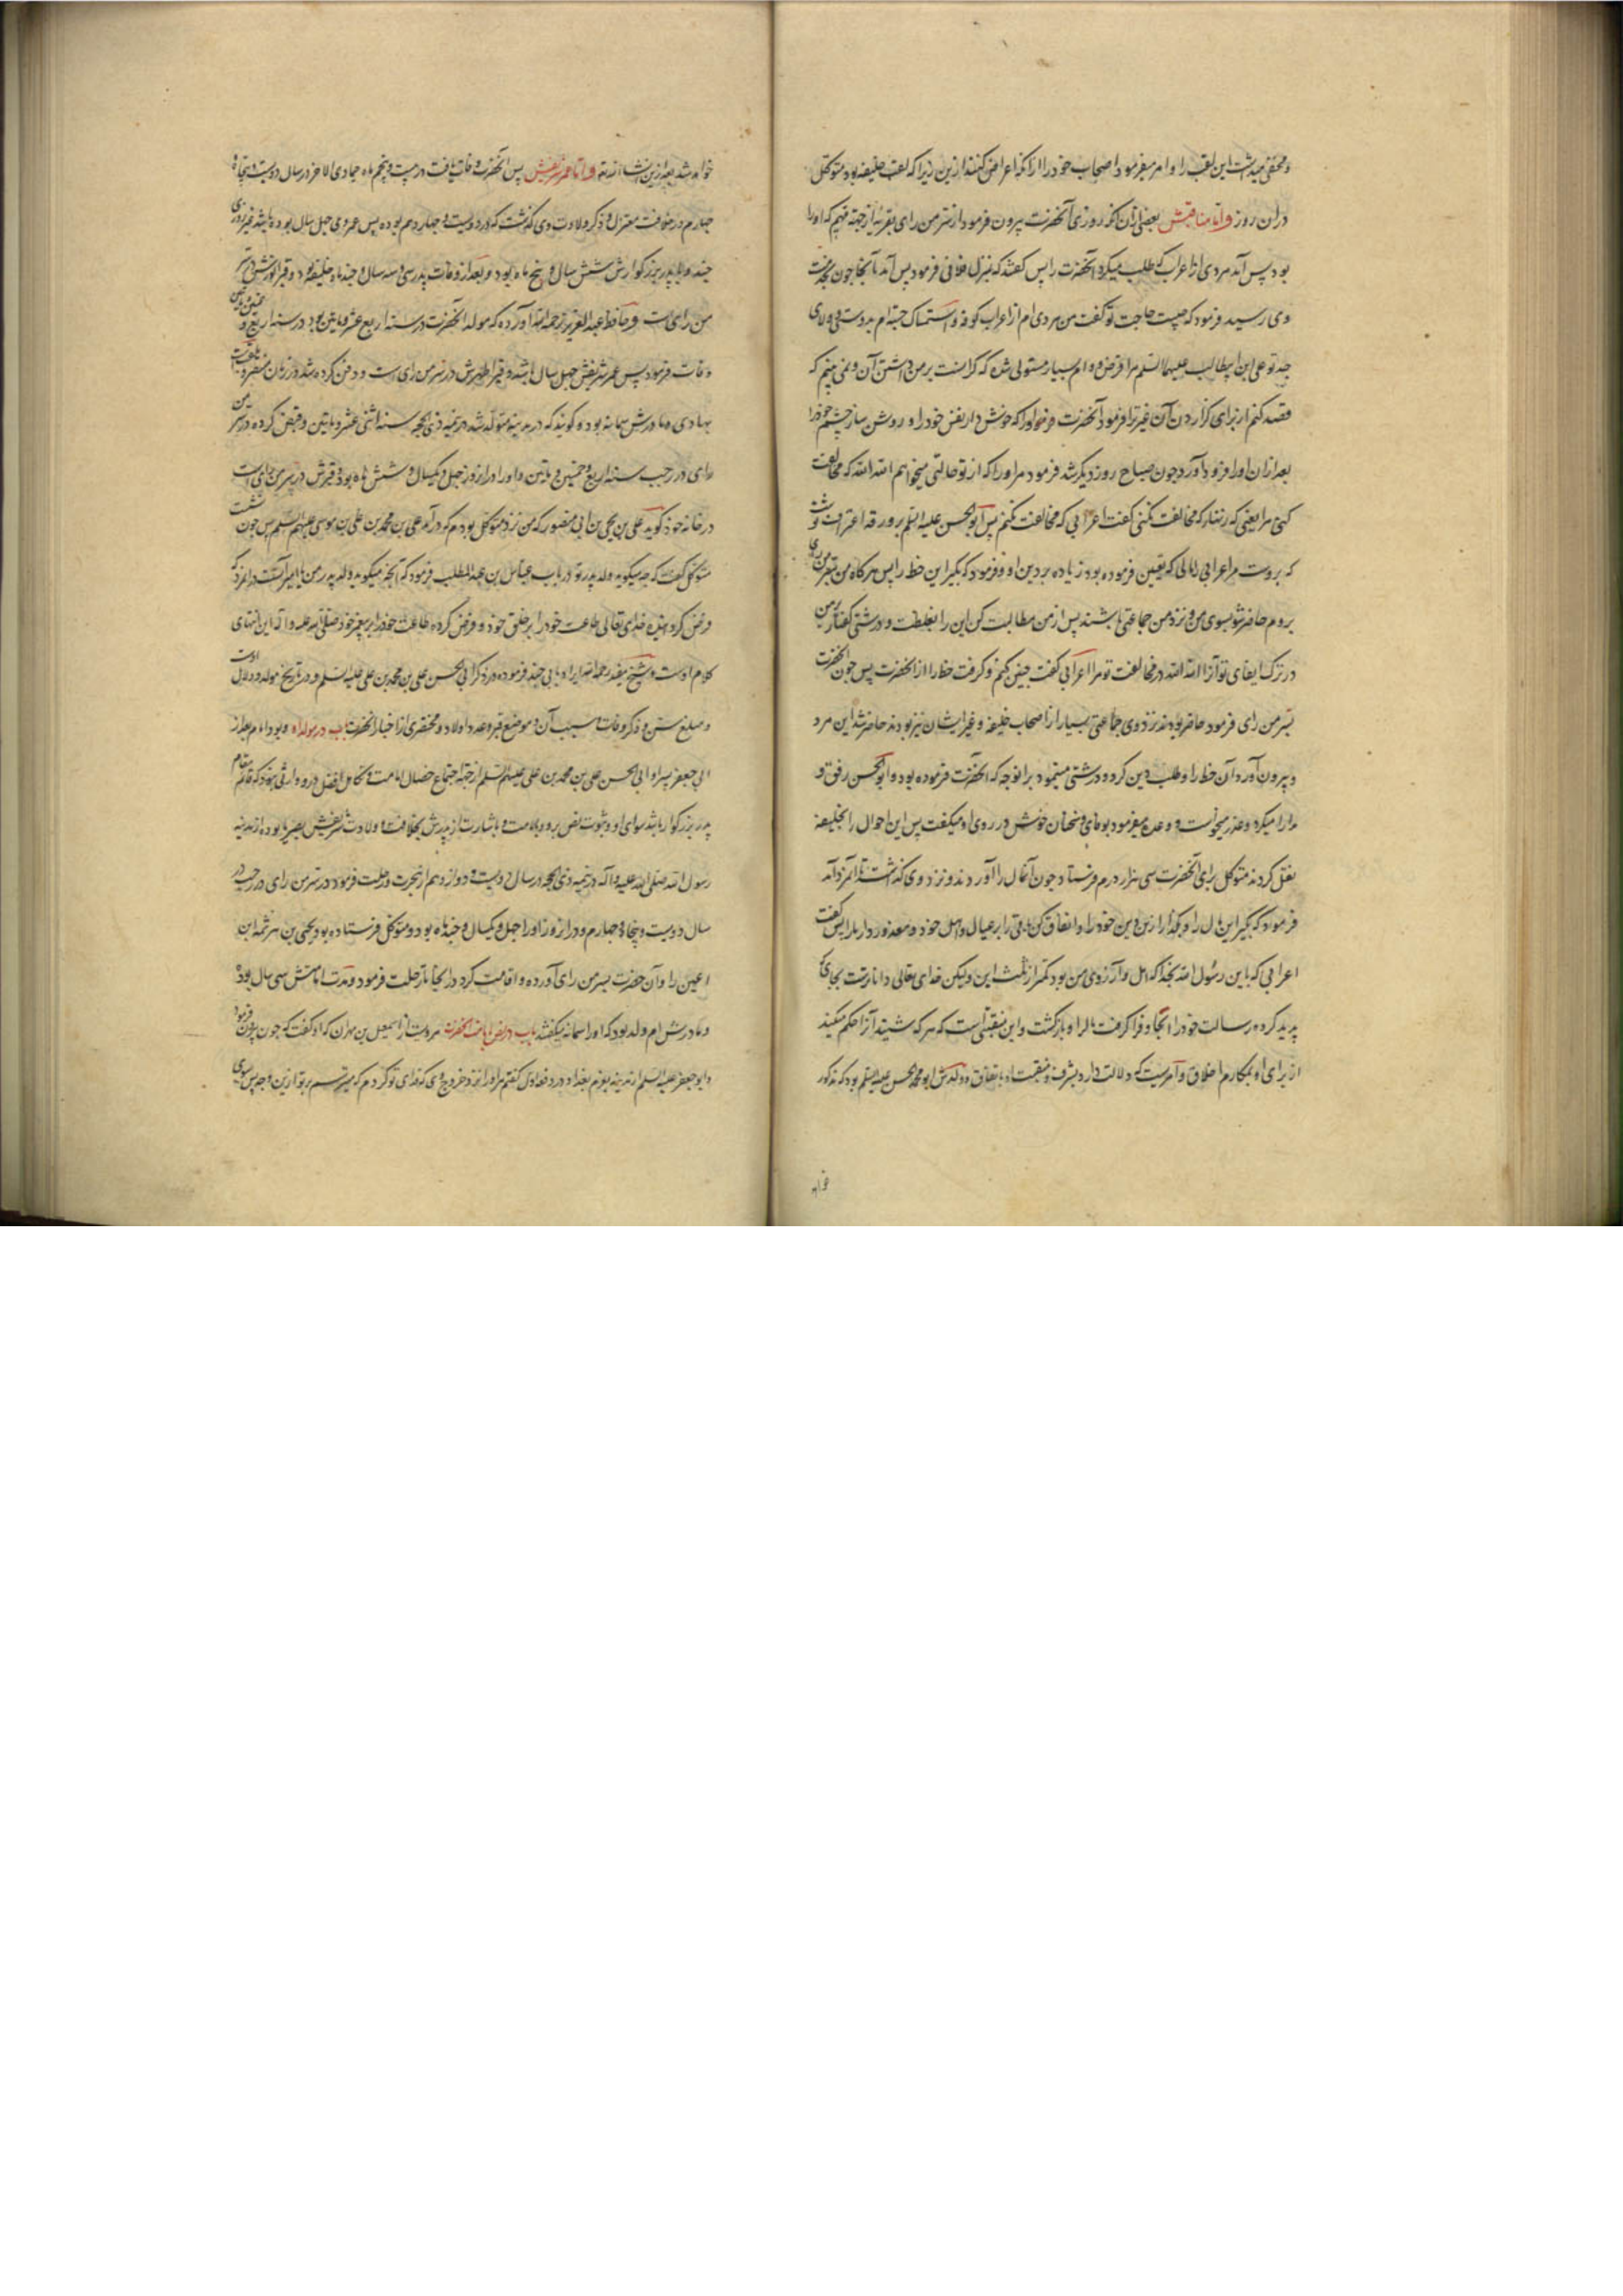 و مخفی میداشت این لقب را و امر میفرمود اصحاب خود را از آنکه اعراض کنند ازین زیرا که لقب خلیفه بود متوکل
در ان روز و اما مناقبش بعضی ازان آنکه روزی آنحضرت بیرون فرمود از سر من رای بقریه از جهة مهم که او را
بود پس آمد مردی از اعراب که طلب میکرد آنحضرت را پس گفتند که بمنزل فلانی فرمود پس آمد بآنجا چون بخدمت
وی رسید فرمود که چیست حاجت تو گفت من مردی ام از اعراب کوفه و استمساک جسته ام بدوستی و ولای
جد تو علی ابن ابیطالب علیهما السلم مرا قرض و وام بسیار مستولی شده که گرانست بر من داشتن آن و نمی بینم که
قصد کنم از برای گزاردن آن غیر ترا فرمود آنحضرت مر او را که خوش دار نفس خود را و روشن ساز چشم خود را
بعد ازان او را فرود آورد چون صباح روز دیگر شد فرمود مر او را که از تو حالتی میخواهم الله الله که مخالفت
کنی مرا یعنی که زنهار که مخالفت نکنی گفت اعرابی که مخالفت نکنم پس ابو الحسن علیه السلم بر ورقه اعتراف نوشت
که بروست مر اعرابی را مالی که تعین فرموده بود زیاده بر دین او و فرمود که بگیر این خط را پس هر گاه من بسر من رای
بروم حاضر شو بسوی من و نزد من جماعتی باشند پس از من مطالبت کن این را بغلظت و درشتی گفتار بر من
در ترک ایفای تو آنرا الله الله در مخالفت تو مرا اعرابی گفت چنین کنم و گرفت خط را از آنحضرت پس چون آنحضرت
بسر من رای فرمود حاضر بودند نزد وی جماعتی بسیار از اصحاب خلیفه و غیر ایشان نیز بودند حاضر شد این مرد
و بیرون آورد آن خط را و طلب دین کرد و درشتی مینمود بر انوجه که آنحضرت فرموده بود و ابو الحسن رفق و
مدارا میکرد و عذر میخواست و وعده میفرمود بوفای و سخنان خوش در روی او میگفت پس این احوال را بخلیفه
نقل کردند متوکل برای آنحضرت سی هزار درم فرستاد چون آنمال را آورد ندو نزد وی گذاشت تا آنمرد آمد
فرمود که بگیر این مال را و بگذار ازین دین خود را و انفاق کن باقی را بر عیال و اهل خود و معذور دار ما را پس گفت
اعرابی که یا ابن رسول الله بخدا که امل و آرزوی من بود کمتر از ثلث این و لیکن خدای تعالی داناترست بجای که
پدید کرده رسالت خود را آنجا و فرا گرفت مال را و بازگشت و این منقبتی است که هر که شنید آنرا حکم میکند
از برای او بمکارم اخلاق و آمریست که دلالت دارد بشرف و منقبت او باتفاق و ولدش ابو محمد الحسن علیه السلم بود که مذکور
خواهد
خواهد شد بعد ازین انشاء الله و اما عمر شریفش پس آنحضرت وفات یافت در بیست و پنجم ماه جمادی الاخر در سال دویست و پنجاه و
چهارم در خلافت معتز و ذکر ولادت وی گذشت که در دویست و چهاردهم بوده پس عمر وی چهل سال بوده باشد غیر روزی
چند و با پدر بزرگوارش شش سال و پنج ماه بود و بعد از وفات پدر سی و سه سال و چند ماه خلیفه بود و قبر انورش در سر
من رای است و حافظ عبدالعزیز رحمه الله آورده که مولد آنحضرت در سنه اربع عشر و مایتین بود در سنه اربع و خمسین و مایتین
وفات فرمود پس عمر شریفش چهل سال باشد و قبر اطهرش در سر من رای است و دفن کرده شد در زمان منتصر و ملقبست
بهادی و مادرش سمانه بود و گویند که در مدینه متولد شد در نیمه ذی الحجه سنه اثنی عشر و مایتین و قبض کرده در سر من
رای در رجب سنه اربع و خمسین و مایتین و او را در از روز چهل و یکسال و شش ماه بود و قبرش در سر من رای است
در خانه خود گوید علی بن یحیی بن ابی منصور که من نزد متوکل بودم که در آمد علی بن محمد بن علی بن موسی علیهم السلم پس چون نشست
متوکل گفت که چه میگوید ولد پدر تو در باب عباس بن عبد المطلب فرمود که آنچه میگوید ولد پدر من یا امیر آنست در امر مردی که
فرض کرده خدای تعالی طاعت خود را بر خلق خود و فرض کرده طاعت خود را بر پیغمبر خود صلی الله علیه و آله این انتهای
کلام اوست و شیخ مفید رحمه الله ایراد بابی چند فرموده در ذکر ابی الحسن علی بن محمد بن علی علیه السلم و در تاریخ مولد و دلایل امامت
و مبلغ سن و ذکر وفات و سبب آن و موضع قبر و عدد اولاد و مختصری از اخبار آنحضرت باب در مولد او و بود امام بعد از
ابی جعفر پسر او ابی الحسن علی بن محمد بن علی علیهم السلم از جهة اجتماع خصال امامت و تکامل افضل درو و وارثی نبود که قائم مقام
پدر بزرگوار باشد سوای او و ثبوت نص برو و بامامت و باشارت از پدرش بخلافت و ولادت شریفش بصریا بوده از مدینه
رسول الله صلی الله علیه و آله در نیمه ذی الحجه در سال دویست و دوازدهم از هجرت و رحلت فرمود در سر من رای در رجب در
سال دویست و پنجاه و چهارم و در از روز او را چهل و یکسال و چند ماه بود و متوکل فرستاده بود یحیی بن هرثمه ابن
اعین را و آن حضرت بسر من رای آورده و اقامت کرد در انجا تا رحلت فرمود و مدت امامتش سی سال بود
و مادرش ام ولد بود که او را سمانه میگفتند باب در نص امامت آنحضرت مرویست از اسمعیل بن مهران که او گفت که چون بیرون فرمود
ابو جعفر علیه السلم از مدینه بعزم بغداد در دفعه اول گفتم مر او را نزد خروج وی که فدای تو گردم که میترسم بر تو ازین وجه پس بسوی